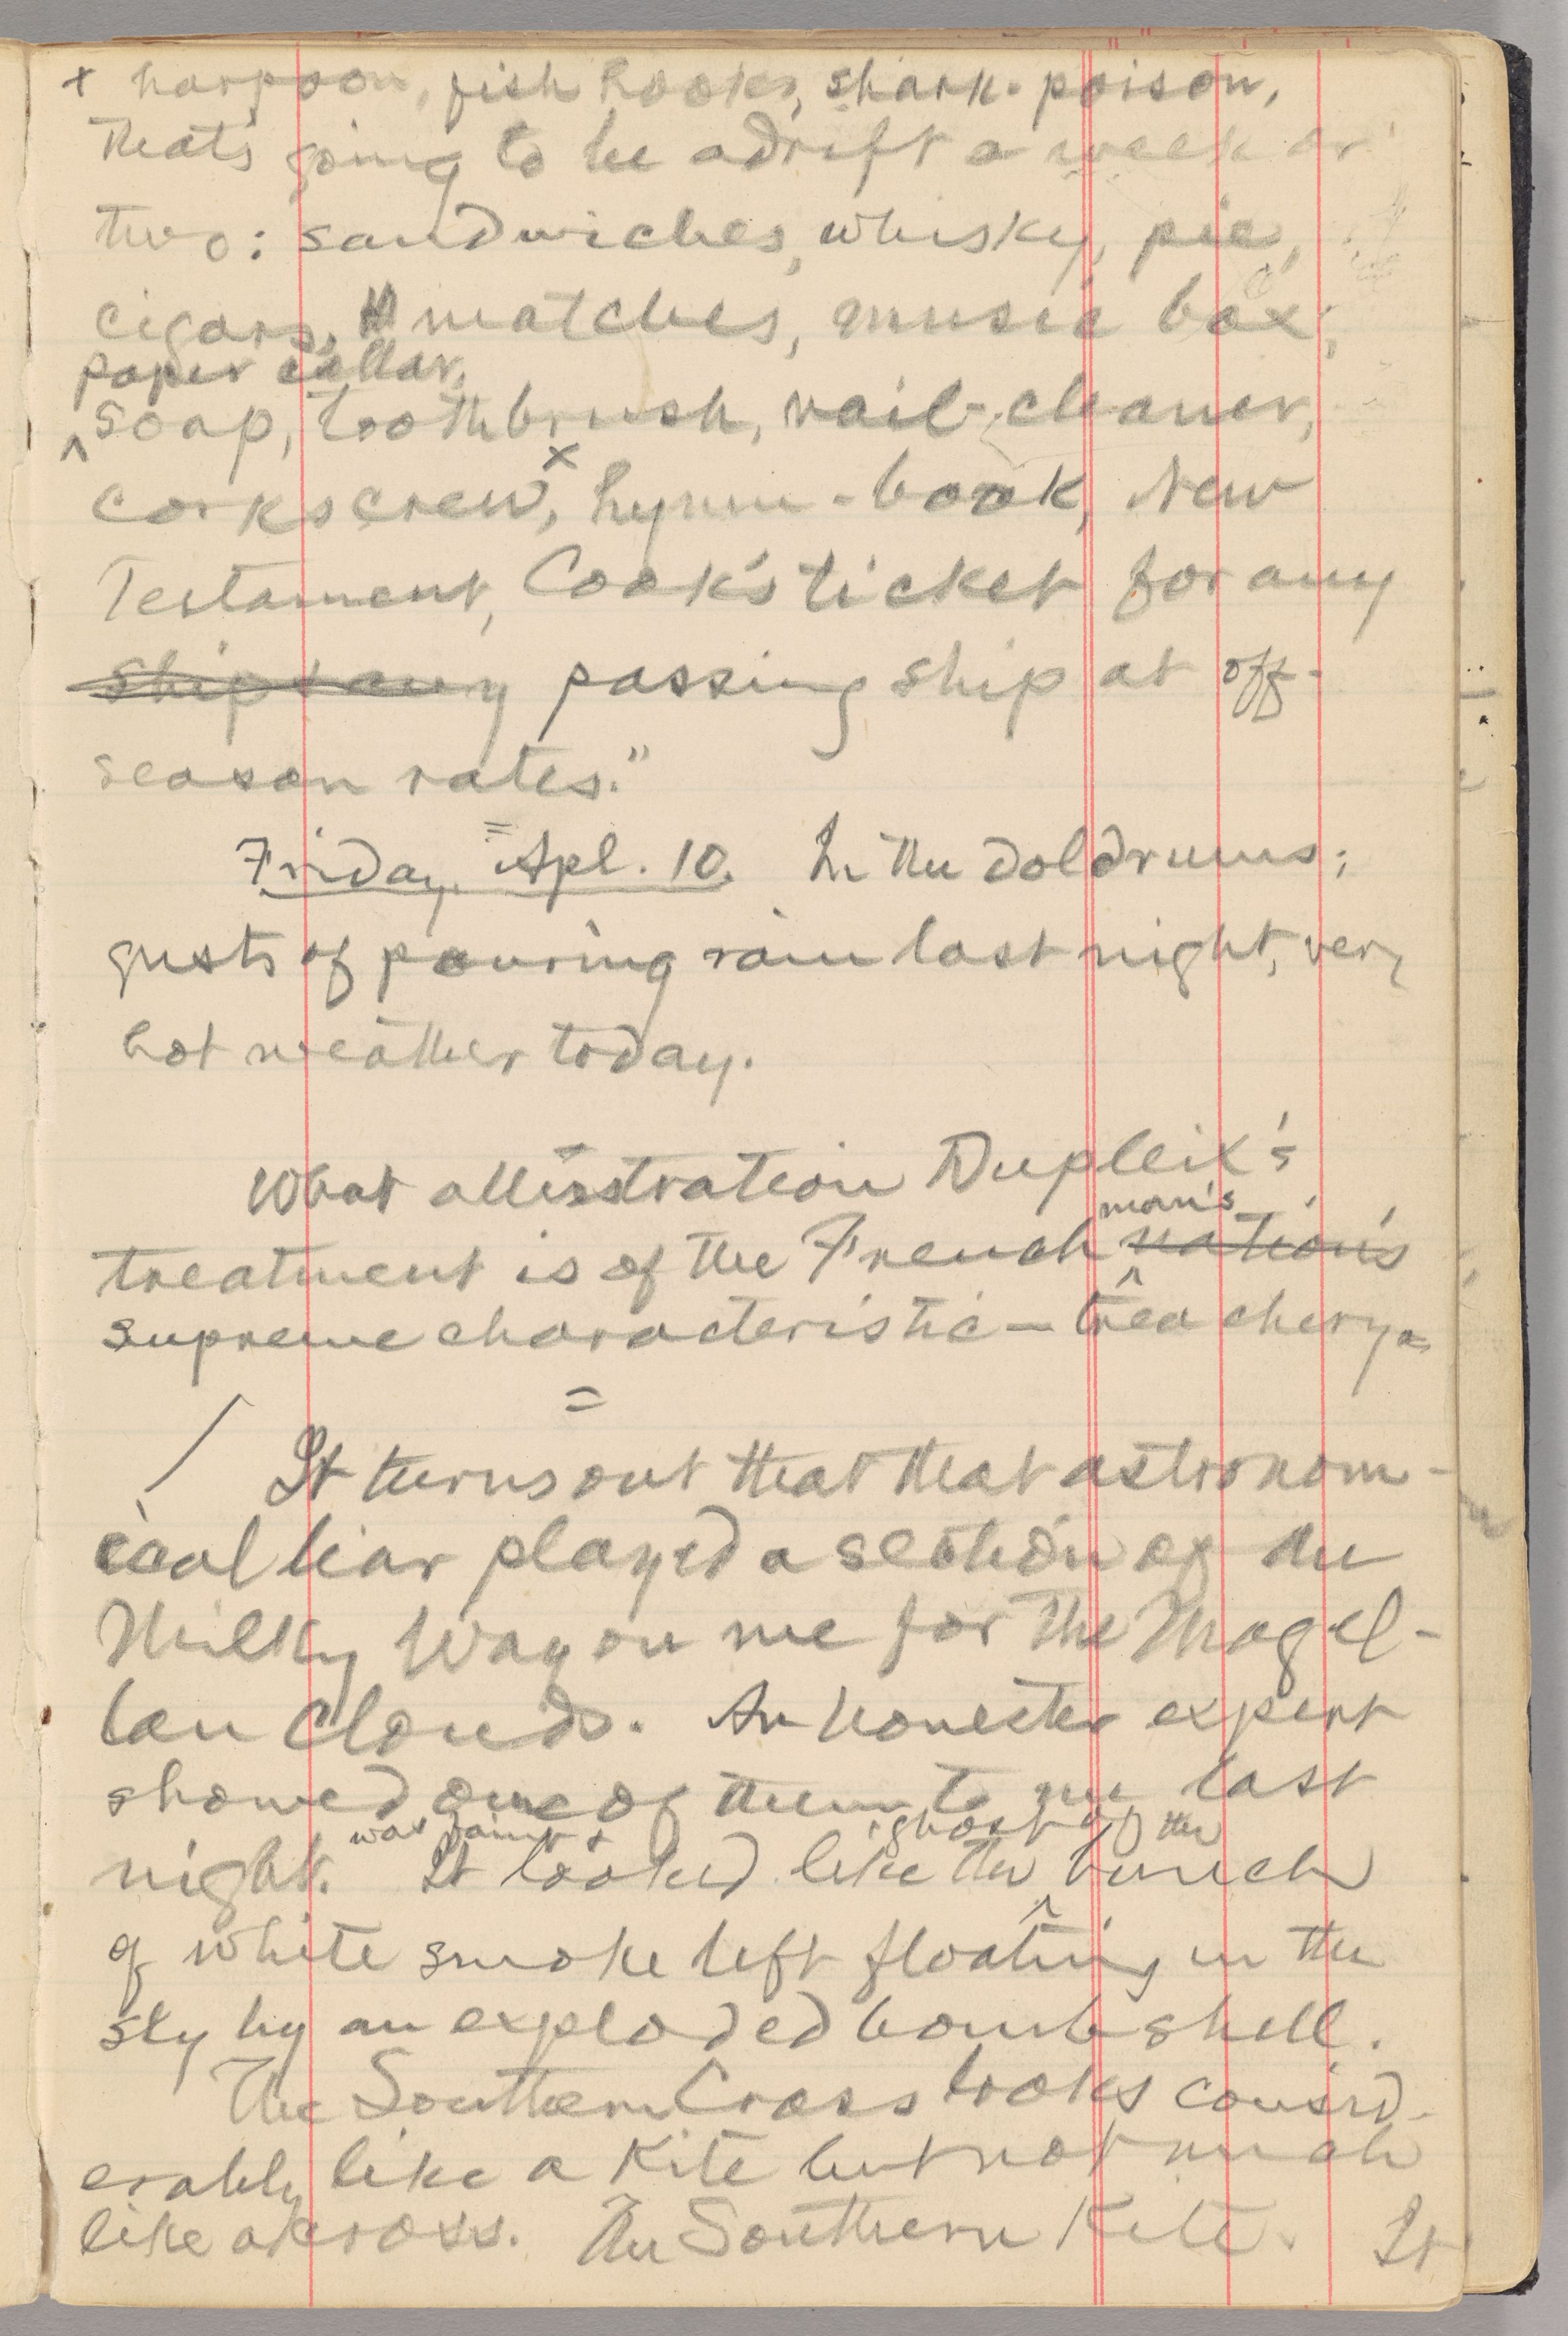 + harpoon, fish hooks, shark-poison,
that's going to be adrift a week or
two: sandwiches, whisky, pie,
cigars, matches, music box;
paper collar,
^ soap, toothbrush, nail-cleaner,
x
corkscrew, hymn-book, New
Testament, Cook's ticket for any
ship + any passing ship at off-
season rates."
=
Friday, Apl. 10. In the doldrums;
gusts of pouring rain last night, very
hot weather today.
What allustration Dupleix's
man's
treatment is of the French ^ nation's
supreme characteristic — treachery.
=
/ It turns out that that astronom-
ical liar played a section of the
Milky Way on me for the Magel-
lan Clouds. An honester expert
showed one of them to me last
was faint + ghost of the
night. It looked like the ^ bunch
of white smoke left floating in the
sky by an exploded bombshell.
The Southern Cross looks consid-
erably like a kite but not much
like a cross. The Southern Kite. It